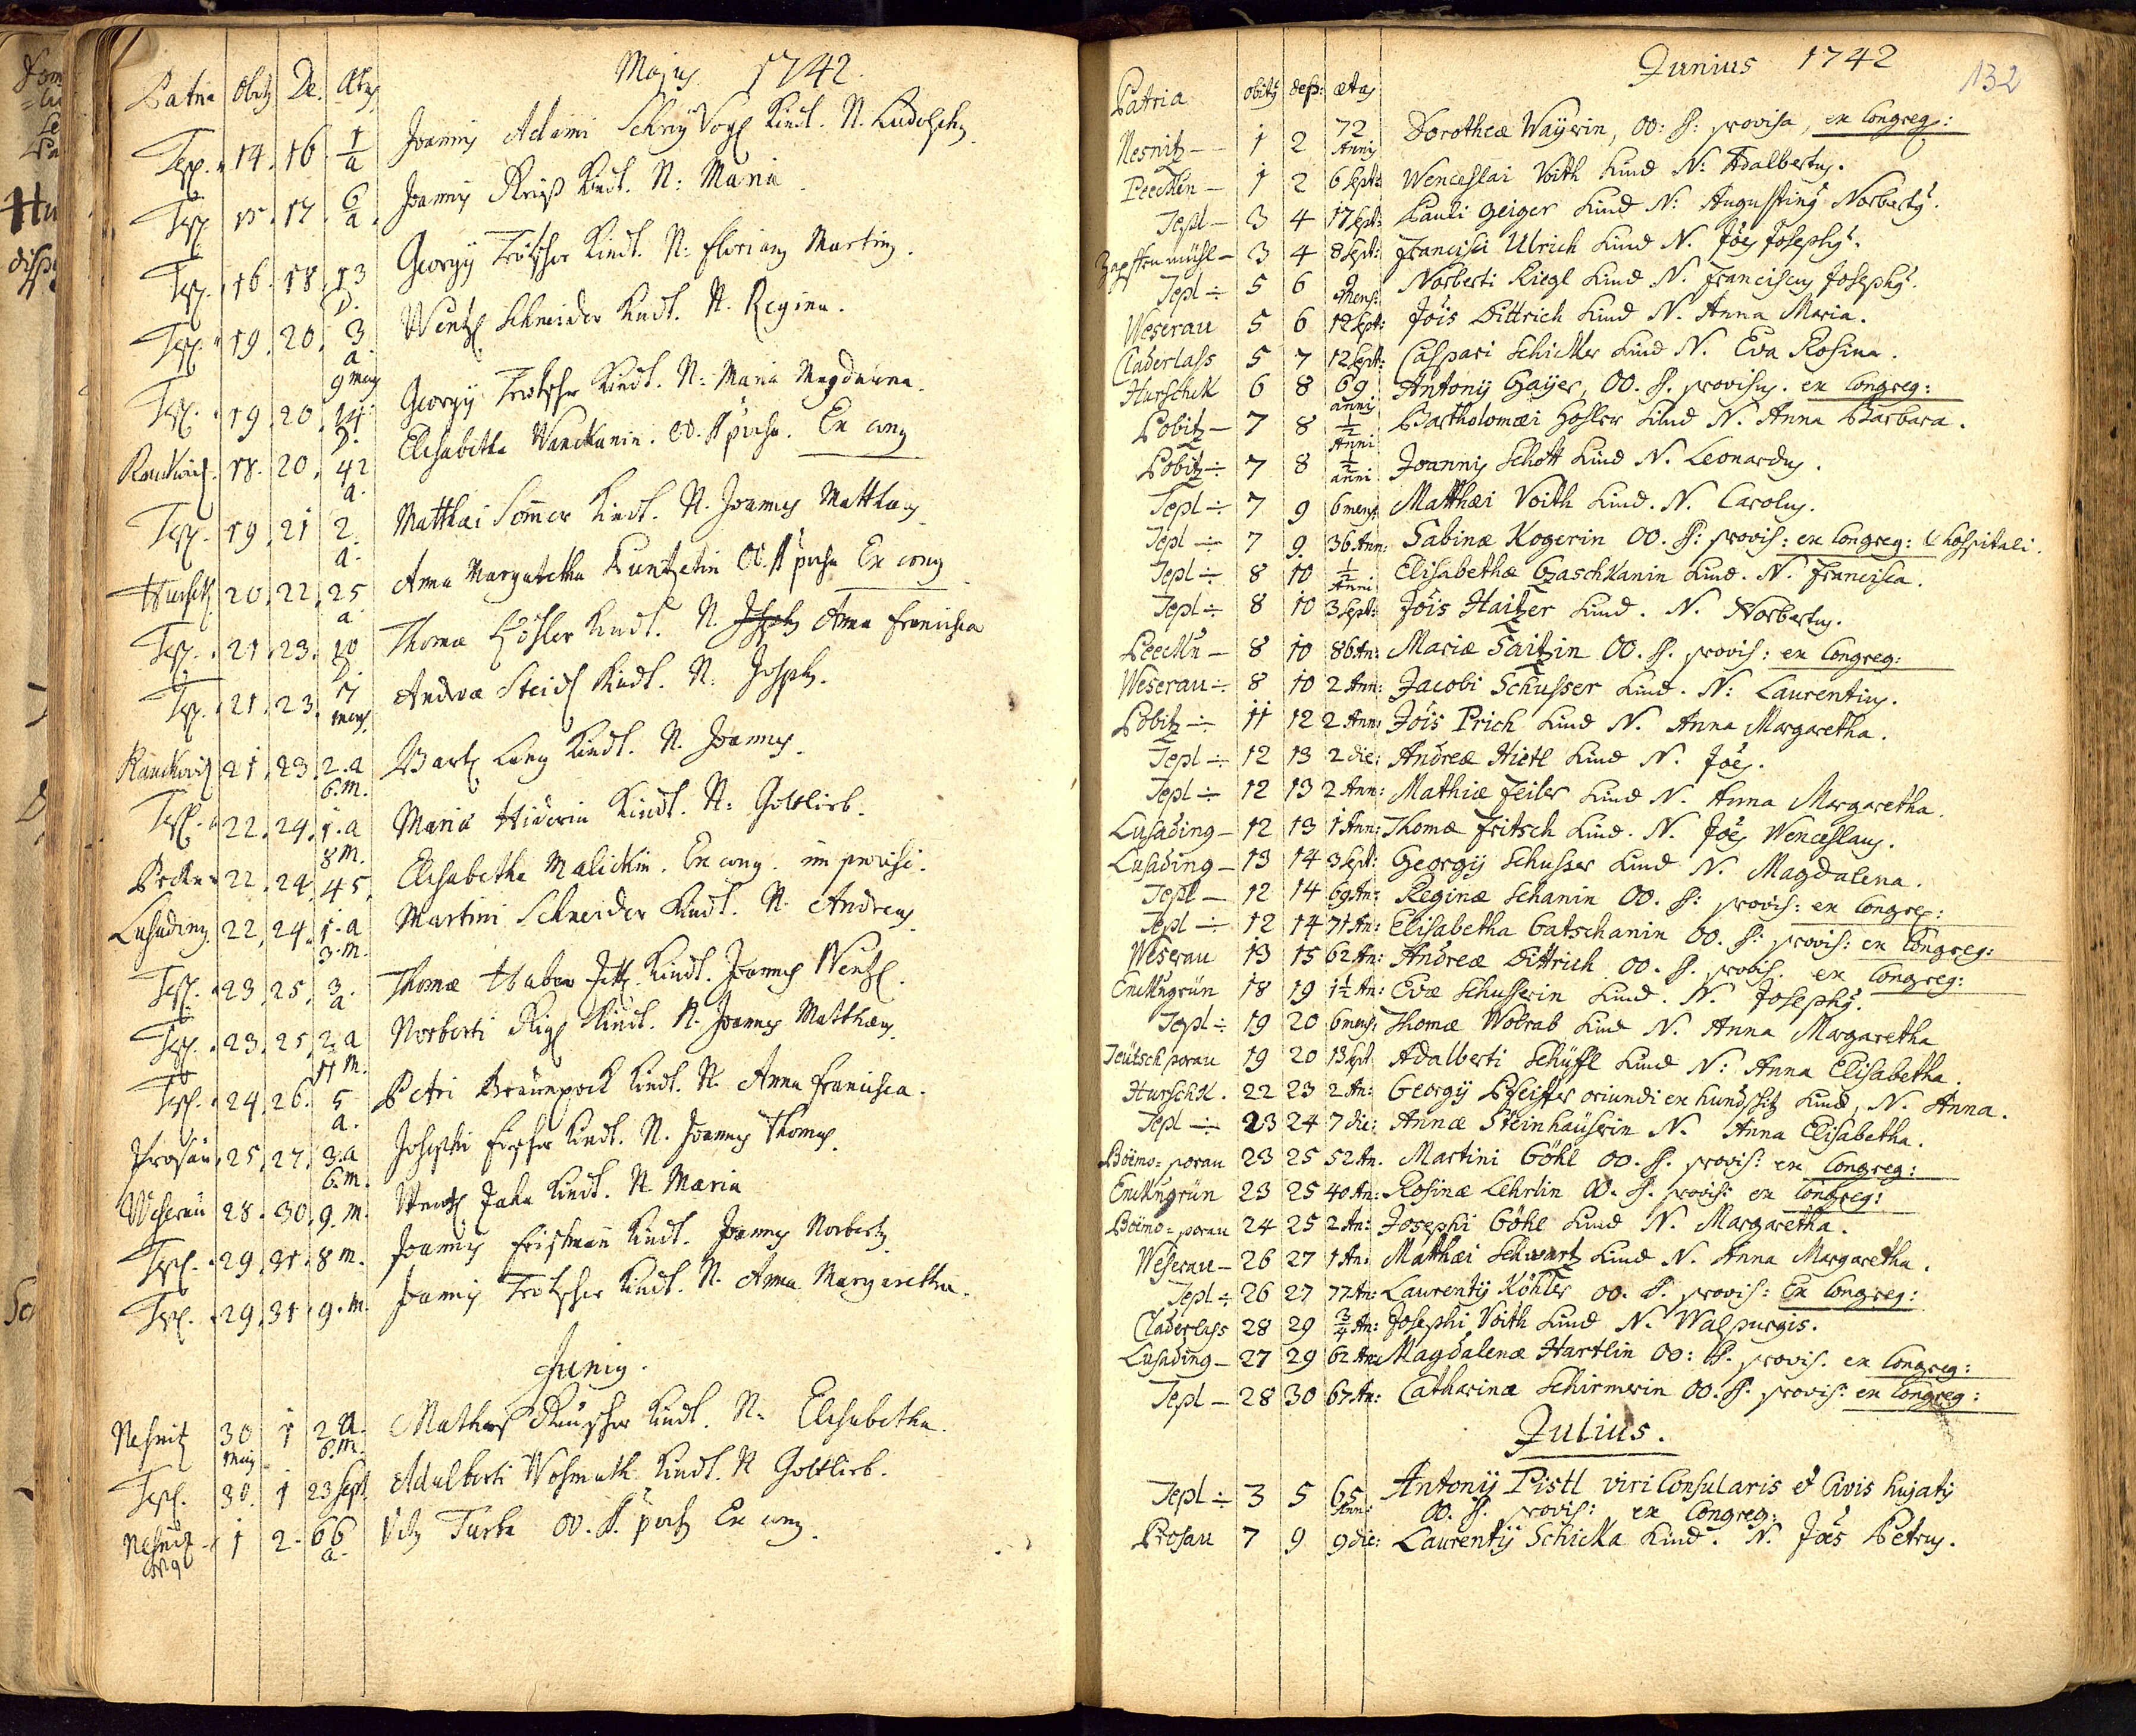 Majus 1742.
Patria Obitq De. Ætas
Tepl. 14. 16. 1 a Joannis Adami Kindl. N. Ludolphq
Tepl 15. 17. 6 a. Joannis Kindl. N: Maria
Tepl. 16. 18. 13 D. Georgij Trötscher Kindl. N: Florianq Martinq.
Tepl. 19. 20. 3 a. Wentzl Schneider Kindl. N. Regina.
Tepl. 19. 20. 9 mens 14 D. Georgij Trötscher Kindl. N: Maria Magdalena.
18. 20. 42 a. Elisabetha OO. SS provisa. Ex cong
Tepl. 19. 21 2. a. Matthæi Somer Kindl. N. Joannes Matthæus
Hurschk 20. 22. 25 a Anna Margaretha OO. SS provisa Ex cong
Tepl. 21. 23. 10 D. Thomæ Hösler Kindl. N. Anna Francisca
Tepl. 21. 23. 7 mens. Andreæ Steidl Kindl. N: Josephq.
21. 23. 2. a 6. m. Bartl Lang Kindl. N. Joannes.
Tepl. 22. 24. 1. a 8 m. Maria Kindl. N: Gottlieb.
22. 24. 45. Elisabetha Malickin. Ex cong. improvisi.
Lusading. 22. 24. 1. a 3. m. Martini Schneider Kindl. N. Andreas
Tepl. 23. 25. 3. a Thomæ Kindl. Joannes Wentzl.
Tepl. 23. 25. 2. a 11 m. Norberti Rigl Kindl. N. Joannes Matthæus.
Tepl. 24. 26. 5 a. Petri Kindl. N. Anna Francisca.
Prosau. 25. 27. 3. a 6. m. Josephi Kindl. N. Joannes Thomas.
Weserau 28. 30. 9. m. Wentzl Jahn Kindl. N. Maria
Tepl. 29. 31. 8 m. Joannis Kindl. Joannes Norbertq
Tepl. 29. 31. 9. m. Joannis Trötscher Kindl. N. Anna Margaretha.
Junius.
Nesnitz 30 maij 1 2 a. 6. m. Kindl. N: Elisabetha.
Tepl. 30. 1 23 Sept. Adalberti Wohlmuth Kindl. N Gottlieb.
Nesnitz 1 2. 66 a. Vitq OO. SS. Ex cong.
Junius 1742
132
Patria obitq dep: ætas
Nesnitz - 1 2 72 Annis Dorotheæ Waÿrin, OO: S: provisa, ex Congreg:
Peecken - 1 2 6 Sept: Wenceslai Voith Kind N: Adalbertq.
Tepl - 3 4 17 Sept: Pauli Geiger Kind N: Augustinq Norbertq.
Zapffenmühl - 3 4 8 Sept: Francisci Ulrich Kind N. Jöes Josephq.
Tepl ÷ 5 6 9 mens: Norberti Riegl Kind N. Franciscus Josephq.
Weserau 5 6 12 Sept: Jöis Dittrich Kind N. Anna Maria.
Claderlass 5 7 12 Sept: Caspari Schickler Kind N. Eva Rosina.
Hurschck 6 8 69 anni Antonij Gaÿer, OO. S. provisq. ex Congreg:
Pobitz - 7 8 ½ Anni Bartholomæi Hosler Kind N. Anna Barbara.
Pobitz ÷ 7 8 ½ anni Joannis Schott Kind N. Leonardq.
Tepl ÷ 7 9 6 mens. Matthæi Voith Kind. N. Carolq.
Tepl ÷ 7 9. 36 Ann: Sabinæ Kogerin OO. S: provis: ex Congreg: & hospitali.
Tepl ÷ 8 10 ½ Anni Elisabethæ Gaschkanin Kind. N. Francisca.
Tepl ÷ 8 10 3 Sept: Jöis Haitzer Kind. N. Norbertq.
Peeckn - 8 10 86 An: Mariæ Saitzin OO. S. provis: ex Congreg:
Weserau ÷ 8 10 2 Ann: Jacobi Schusser Kind. N: Laurentiq.
Pobitz ÷ 11 12 2 Ann: Jöis Prich Kind N. Anna Margaretha.
Tepl ÷ 12 13 2 die: Andreæ Hietl Kind N. Jöes.
Tepl ÷ 12 13 2 Ann: Mathiæ Feiler Kind N. Anna Margaretha.
Lusading - 12 13 1 Ann: Thomæ Fritsch Kind. N. Jöes Wenceslaus.
Lusading - 13 14 3 Sept: Georgij Schusser Kind N. Magdalena.
Tepl - 12 14 69 An: Reginæ Schanin OO. S: provis: ex Congreg:
Tepl ÷ 12 14 71 An: Elisabetha Gatschanin OO. S: provis: ex Congreg:
Weserau 13 15 62 An: Andreæ Dittrich OO. S. provis. ex Congreg:
Enckngrün 18 19 1½ An: Evæ Schusserin Kind. N. Josephq.
Tepl ÷ 19 20 6 mens: Thomæ Wobrab Kind N. Anna Margaretha
Teütschporau 19 20 13 Sept Adalberti Schüssl Kind N: Anna Elisabetha.
Hurschk. 22 23 2 An: Georgij Pfeiffer oriundi ex Hundschitz Kind, N. Anna.
Tepl ÷ 23 24 7 die: Annæ Steinhäuserin N. Anna Elisabetha.
Boëmo=porau 23 25 52 An. Martini Göhl OO. S. provis: ex Congreg:
Enckngrün 23 25 40 An: Rosinæ Lehrlin OO. S. provis: ex Congreg:
Boëmo=porau 24 25 2 An: Josephi Göhl Kind N. Margaretha.
Weserau - 26 27 1 An: Matthæi Schwartz Kind N. Anna Margaretha.
Tepl ÷ 26 27 77 An: Laurentij Köhler OO. S. provis: Ex Congreg:
Claderlass 28 29 ¾ An: Josephi Voith Kind N. Walpurgis.
Lusading - 27 29 62 An: Magdalenæ Hartlin OO: S. provis. ex Congreg:
Tepl - 28 30 67 An: Catharinæ Schirmerin OO. S. provis: ex Congreg:
Julius.
Tepl ÷ 3 5 65 Ann: Antonij Pistl viri Consularis et Civis hujatis
OO. S. provis: ex Congreg:
Prosau 7 9 9 die: Laurentij Schicka Kind. N. Jöes Petrus.